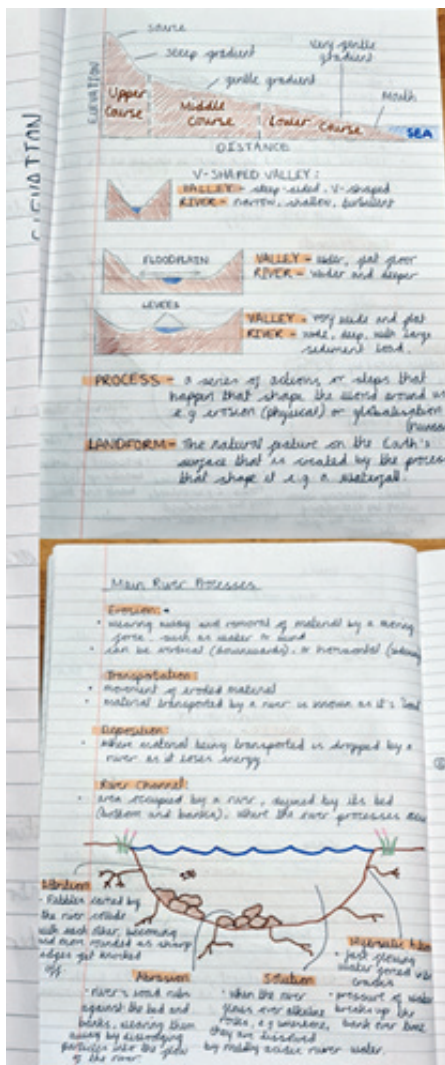 source
steep gradient
gentle gradient
very gentle
gradient
Mouth
ELEVATION
ELEVATION
Upper
Course
Middle
Course
Lower Course
SEA
DISTANCE
V-SHAPED VALLEY:
VALLEY - steep-sided, V-shaped
RIVER - narrow, shallow, turbulent
FLOODPLAIN
VALLEY - wider, flat floor
RIVER - wider and deeper
LEVEES
VALLEY - very wide and flat
RIVER - wide, deep, with large
sediment load.
PROCESS - a series of actions or steps that
happen that shape the world around us
e.g erosion (physical) or globalisation
LANDFORM - The natural feature on the Earth's
surface that is created by the proces
that shape it e.g. a waterfall.
Main River Processes
Erosion:
• wearing away and removal of material by a moving
force, such as water or wind
• can be vertical (downwards), or horizontal
Transportation:
• movement of eroded material
• material transported by a river is known as it's load
Deposition
• where material being transported is dropped by a
river as it loses energy.
River Channel:
• area occupied by a river, defined by its bed
(bottom and banks), where the river processes
Attrition:
• Pebbles carried by
the river collide
with each other, becoming
and more rounded as sharp
edges get knocked
off.
Abrasion
• river's load rubs
against the bed and
banks, wearing them
away by dislodging
particles into the flow
of the river.
Solution
• when the river
flows over alkaline
rocks, e.g limestone,
they are dissolved
by mildly acidic river water.
Hydraulic
• fast flowing
water forced into
cracks
• pressure of water
breaks up the
bank over time